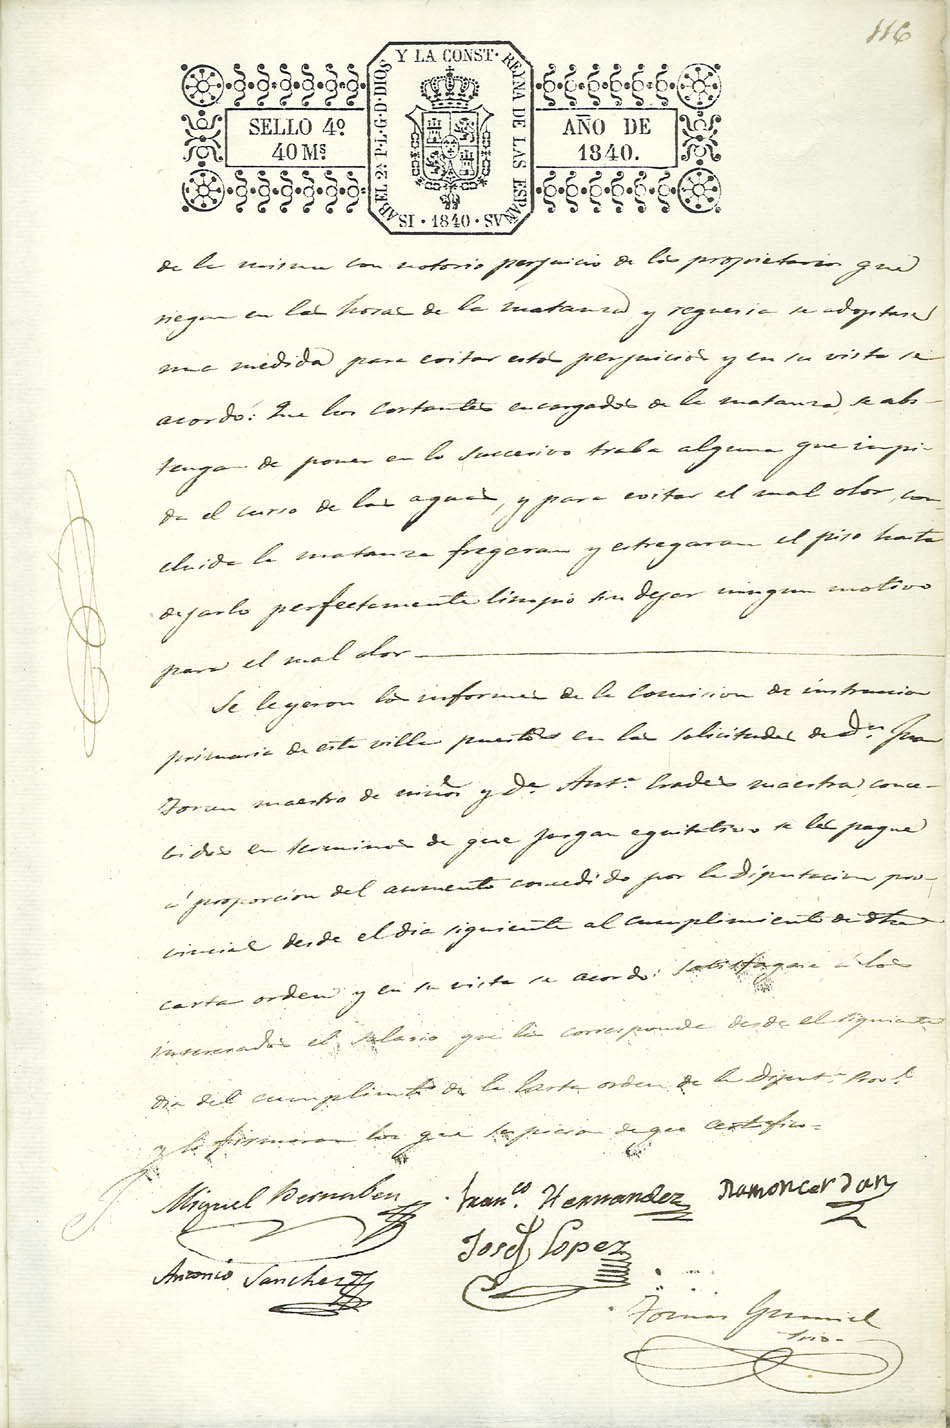 116
ISABEL 2ª P. L. G. D. DIOS Y LA CONST. REYNA DE LAS ESPAÑAS
· 1840 ·
SELLO 4º
40 Mˢ
AÑO DE
1840.
de la misma con notorio perjuicio de los propietarios que
riegan en las horas de la matanza y requeria se adoptase
una medida para evitar estos perjuicios y en su vista se
acordó: Que los cortantes encargados de la matanza se abs-
tengan de poner en lo succesivo traba alguna que impi-
da el curso de las aguas, y para evitar el mal olor, con-
cluida la matanza fregaran y estregaran el piso hasta
dejarlo perfectamente limpio sin dejar ningun motivo
para el mal olor
Se leyeron los informes de la Comision de instruccion
primaria de esta villa puestos en las solicitudes de Dⁿ. Juan
maestro de niños y Dª Antª maestra, conce-
bidos en terminos de que juzgan equitativo se les pague
á proporcion del aumento concedido por la Diputacion pro-
vincial desde el dia siguiente al cumplimiento de dha
carta orden y en su vista se acordó: Satisfagase á los
interesados el salario que les corresponde desde el siguiente
dia del cumplimtº de la Carta orden de la Diputⁿ. Provˡ.
y lo firmaron los que supieron de que certifico=
Miguel Bernabeu
Franᶜº. Hernandez
Ramon Cerdan
Antonio Sanchez
Josef Lopez
Tomas
Srio.